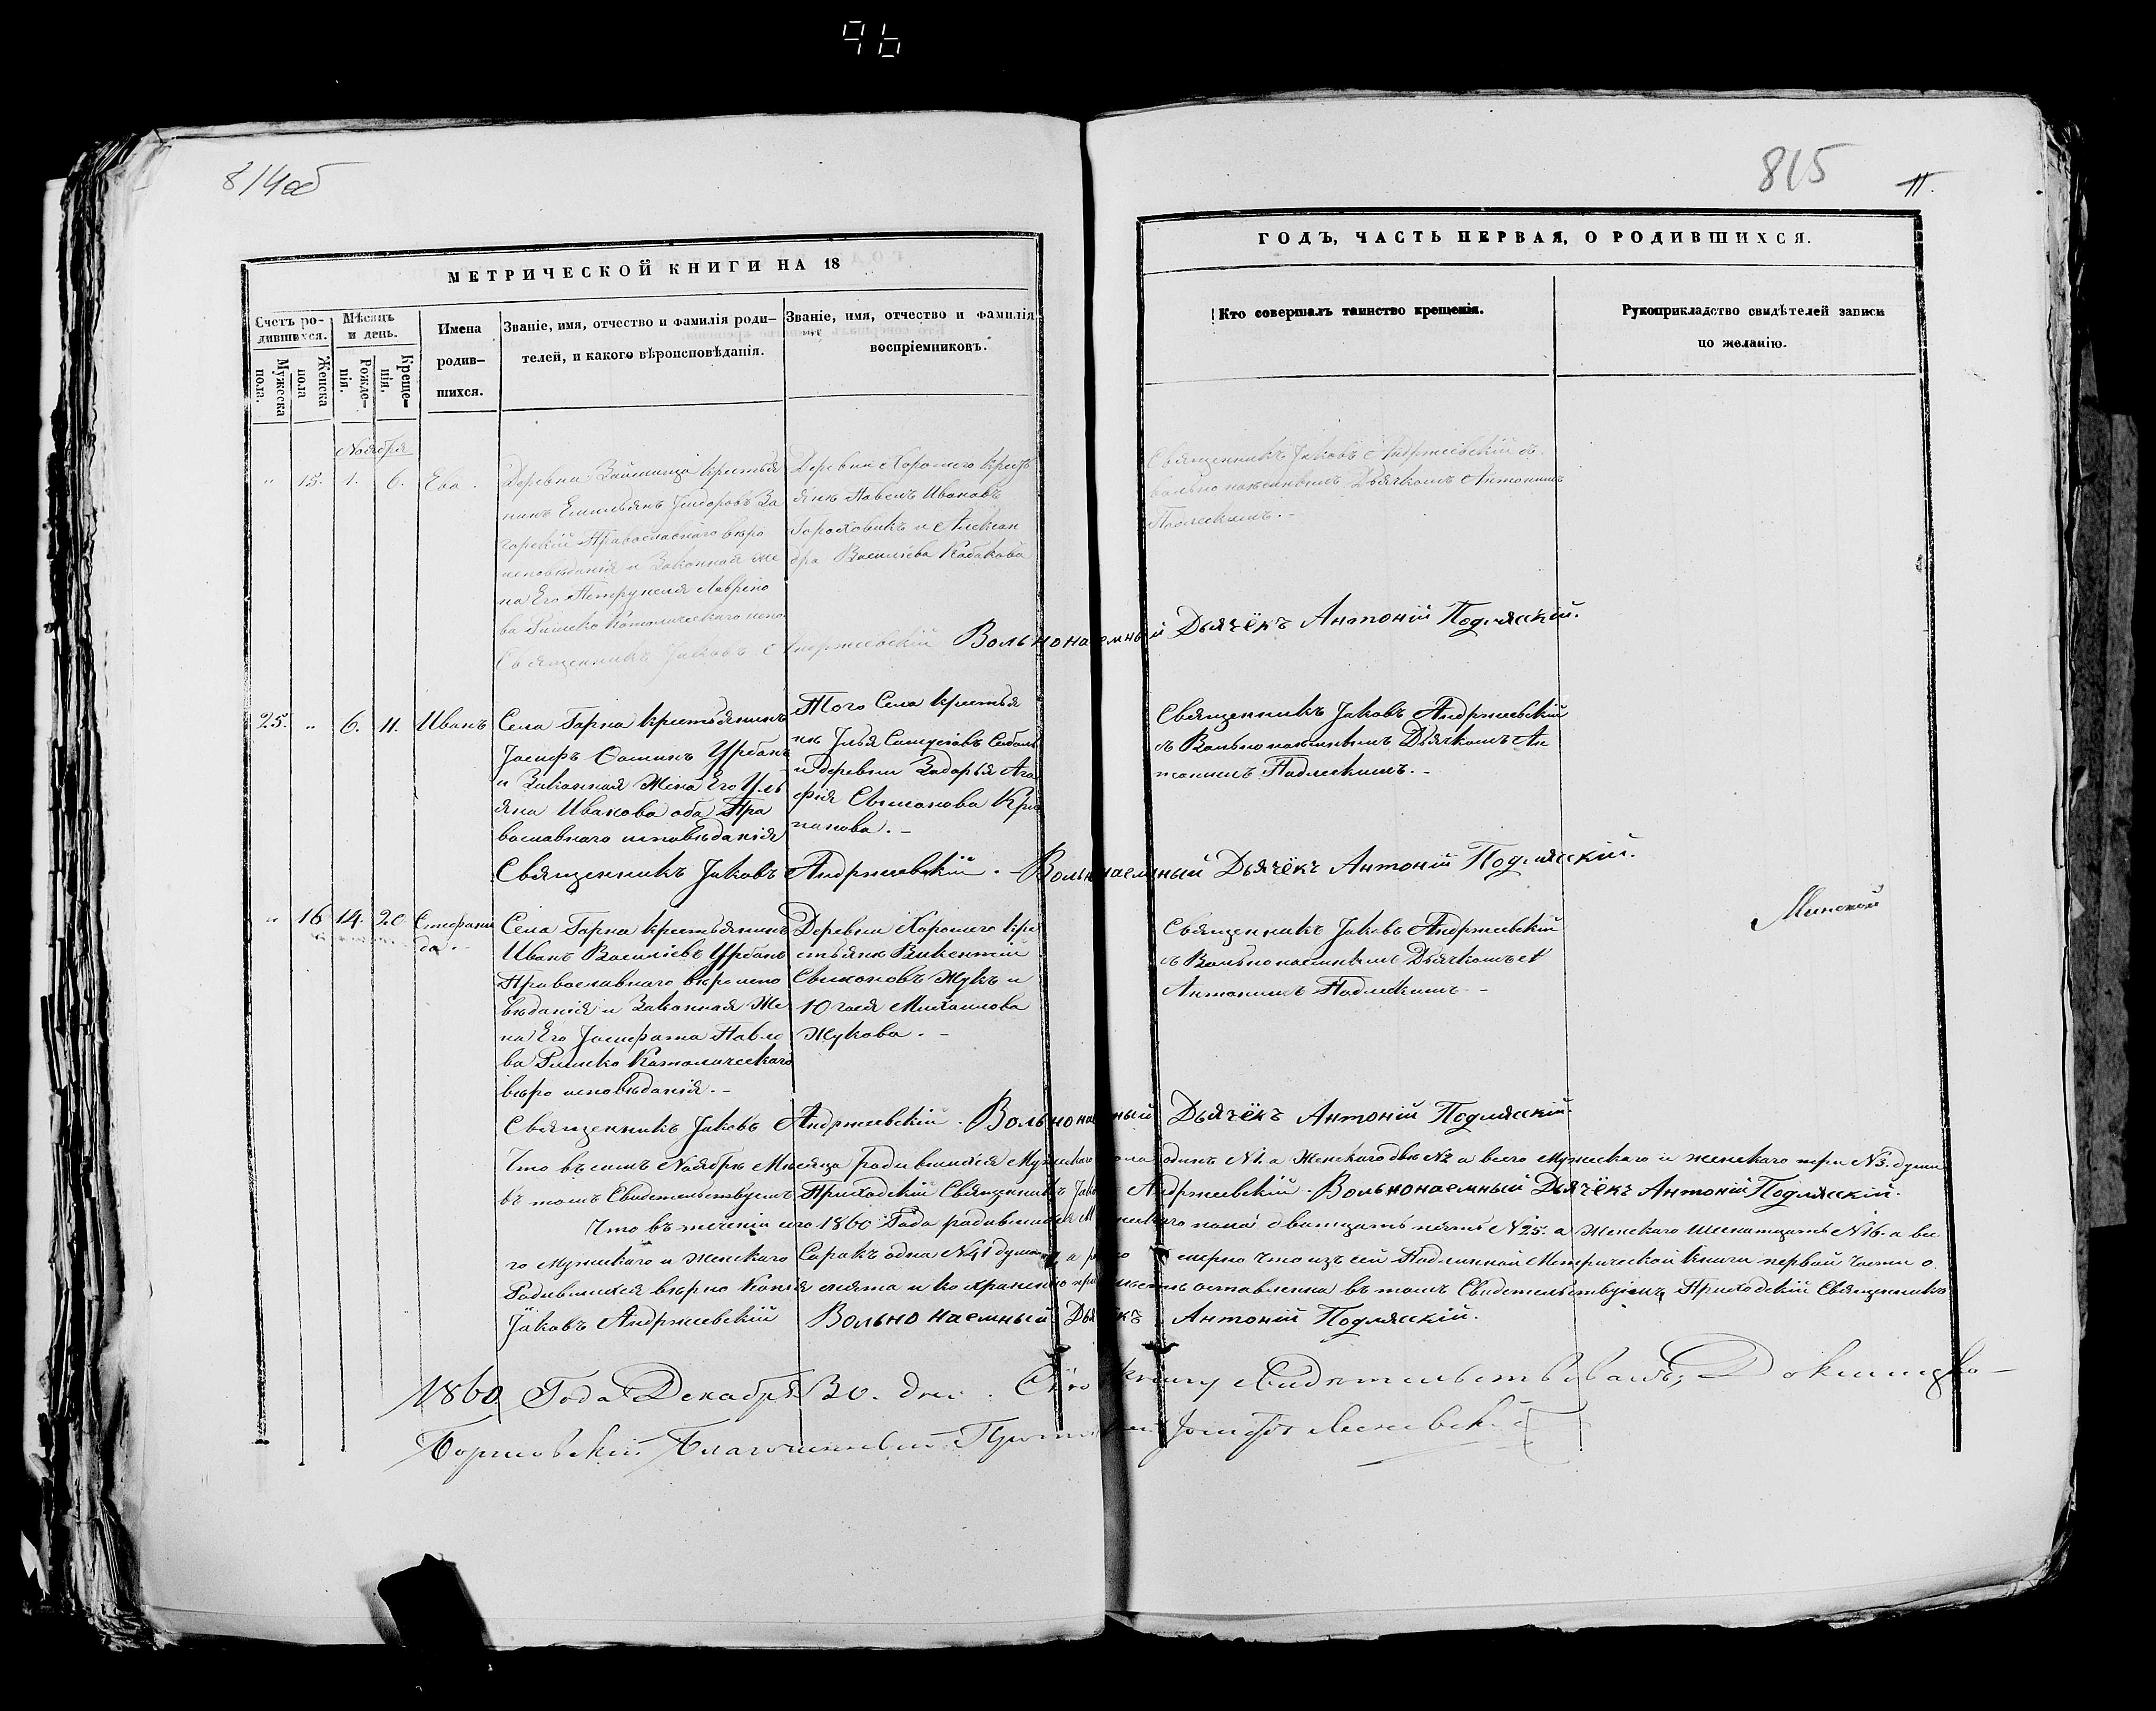 96
814об
815
11.
МЕТРИЧЕСКОЙ КНИГИ НА 18
ГОДЪ, ЧАСТЬ ПЕРВАЯ, О РОДИВШИХСЯ.
Счетъ ро-
дившихся.
Мужеска пола.
Женска пола
Мѣсяцъ
и день.
Рожде-
нія.
Креще-
нія.
Имена
родив-
шихся.
Званіе, имя, отчество и фамилія роди-
телей, и какого вѣроисповѣданія.
Званіе, имя, отчество и фамилія
воспріемниковъ.
Кто совершалъ таинство крещенія.
Рукоприкладство свидѣтелей записи
по желанію.
Ноября
" 15. 1. 6. Ева.
Деревни крестья
нинъ Емильянъ Исидоровъ За
горскій Православнаго вѣро
исповѣданія и Законная же
на Его Петрунеля Лаврено
ва Римско Католическаго испо
Деревни Хорошего Крестъ
янъ Павелъ Ивановъ
и Алексан
дра Васильева
Священникъ Іаковъ Андржеевскій съ
вольнонаемнымъ Дьячкомъ Антониемъ
Подлескимъ. -
Священникъ Іаковъ Андржеевскій Вольнонаемный Дьячёкъ Антоній Подляскій.
25. " 6. 11. Иванъ
Села Горна крестьянинъ
Іосифъ Фоминъ Урбанъ
и Законная Жена Его Уль
яна Иванова оба Пра
вославнаго исповѣданія
Того Села крестья
нъ Илья
и деревни Задорья Ага
фія Симонова
Священникъ Іаковъ Андржеевскій
съ Вольнонаемнымъ Дьячкомъ Ан
тониемъ Подлескимъ. -
Священникъ Іаковъ Андржеевскій. - Вольнонаемный Дьячёкъ Антоній Подляскій.
" 16 14. 20 Стефани
да. -
Села Горна крестьянинъ
Иванъ Васильевъ Урбанъ
Православнаго вѣроиспо
вѣданія и Законная Же
на Его Іосифата Павло
ва Римско Католическаго
вѣро исповѣданія. -
Деревни Хорошего кре
стьянъ Викентій
Симоновъ Жукъ и
Юлія Михайлова
Жукова. -
Священникъ Іаковъ Андржеевскій
съ Вольнонаемнымъ Дьячкомъ
Антониемъ Подлескимъ -
Минской
Священникъ Іаковъ Андржеевскій. Вольнонаемный Дьячёкъ Антоній Подляскій.
Что въ семъ Ноябрѣ Мѣсяцѣ родившихся Мужескаго пола одинъ N1. а Женскаго двѣ N2 а всего мужескаго и женскаго три N3. души
въ томъ Свидетельствуемъ Приходскій Священникъ Іаковъ Андржеевскій. Вольнонаемный Дьячёкъ Антоній Подляскій.
Что въ теченіи сего 1860 Года родившихся Мужескаго пола двадцать пять N25. а Женскаго шеснатцать N16. а все
го мужескаго и женскаго Сорокъ одна N41 душа, а что изъ сей Подлинной Метрической Книги первой части о
Родившихся вѣрно Копія снята и ко храненію при оставленна въ томъ Свидетельствуемъ, Приходскій Священникъ
Іаковъ Андржеевскій Вольнонаемный Дьячёкъ Антоній Подляскій.
1860 Года Декабря 30. дня. Сію книгу свидѣтельствовалъ, Докшицко-
Борисовскій Благочинный